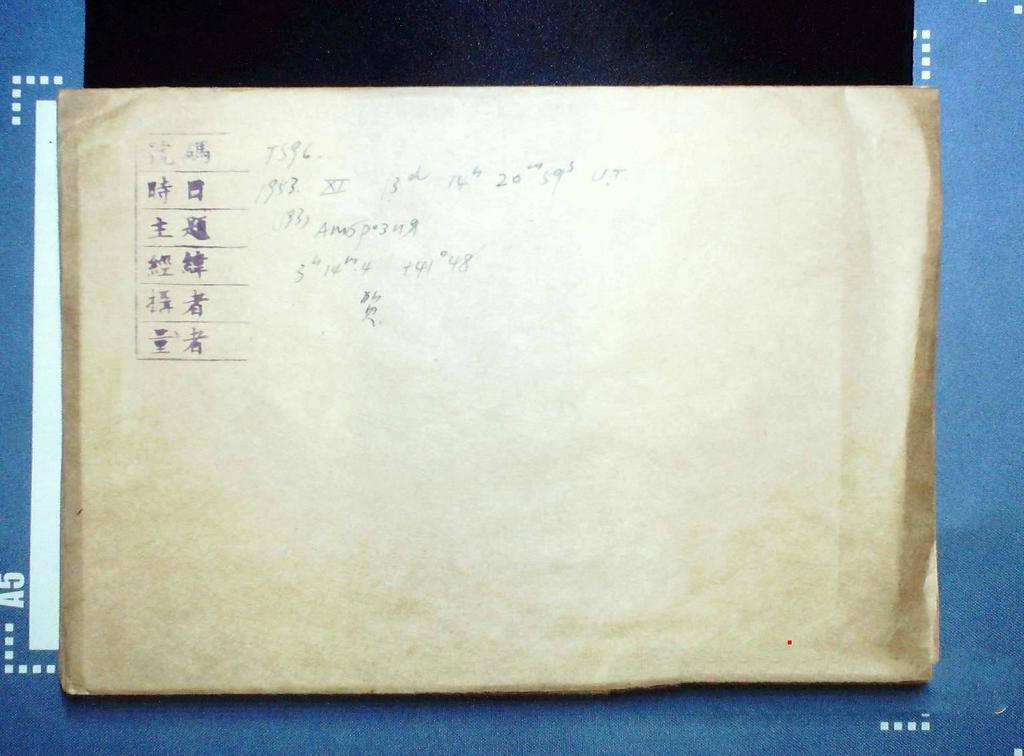 號碼 TS96.
時日 1953. XI 13ᵈ 14ʰ 20ᵐ 59ˢ U.T.
主題 (193) Амброзия
經緯 3ʰ14ᵐ.4 +41°48'
攝者
量者
A5